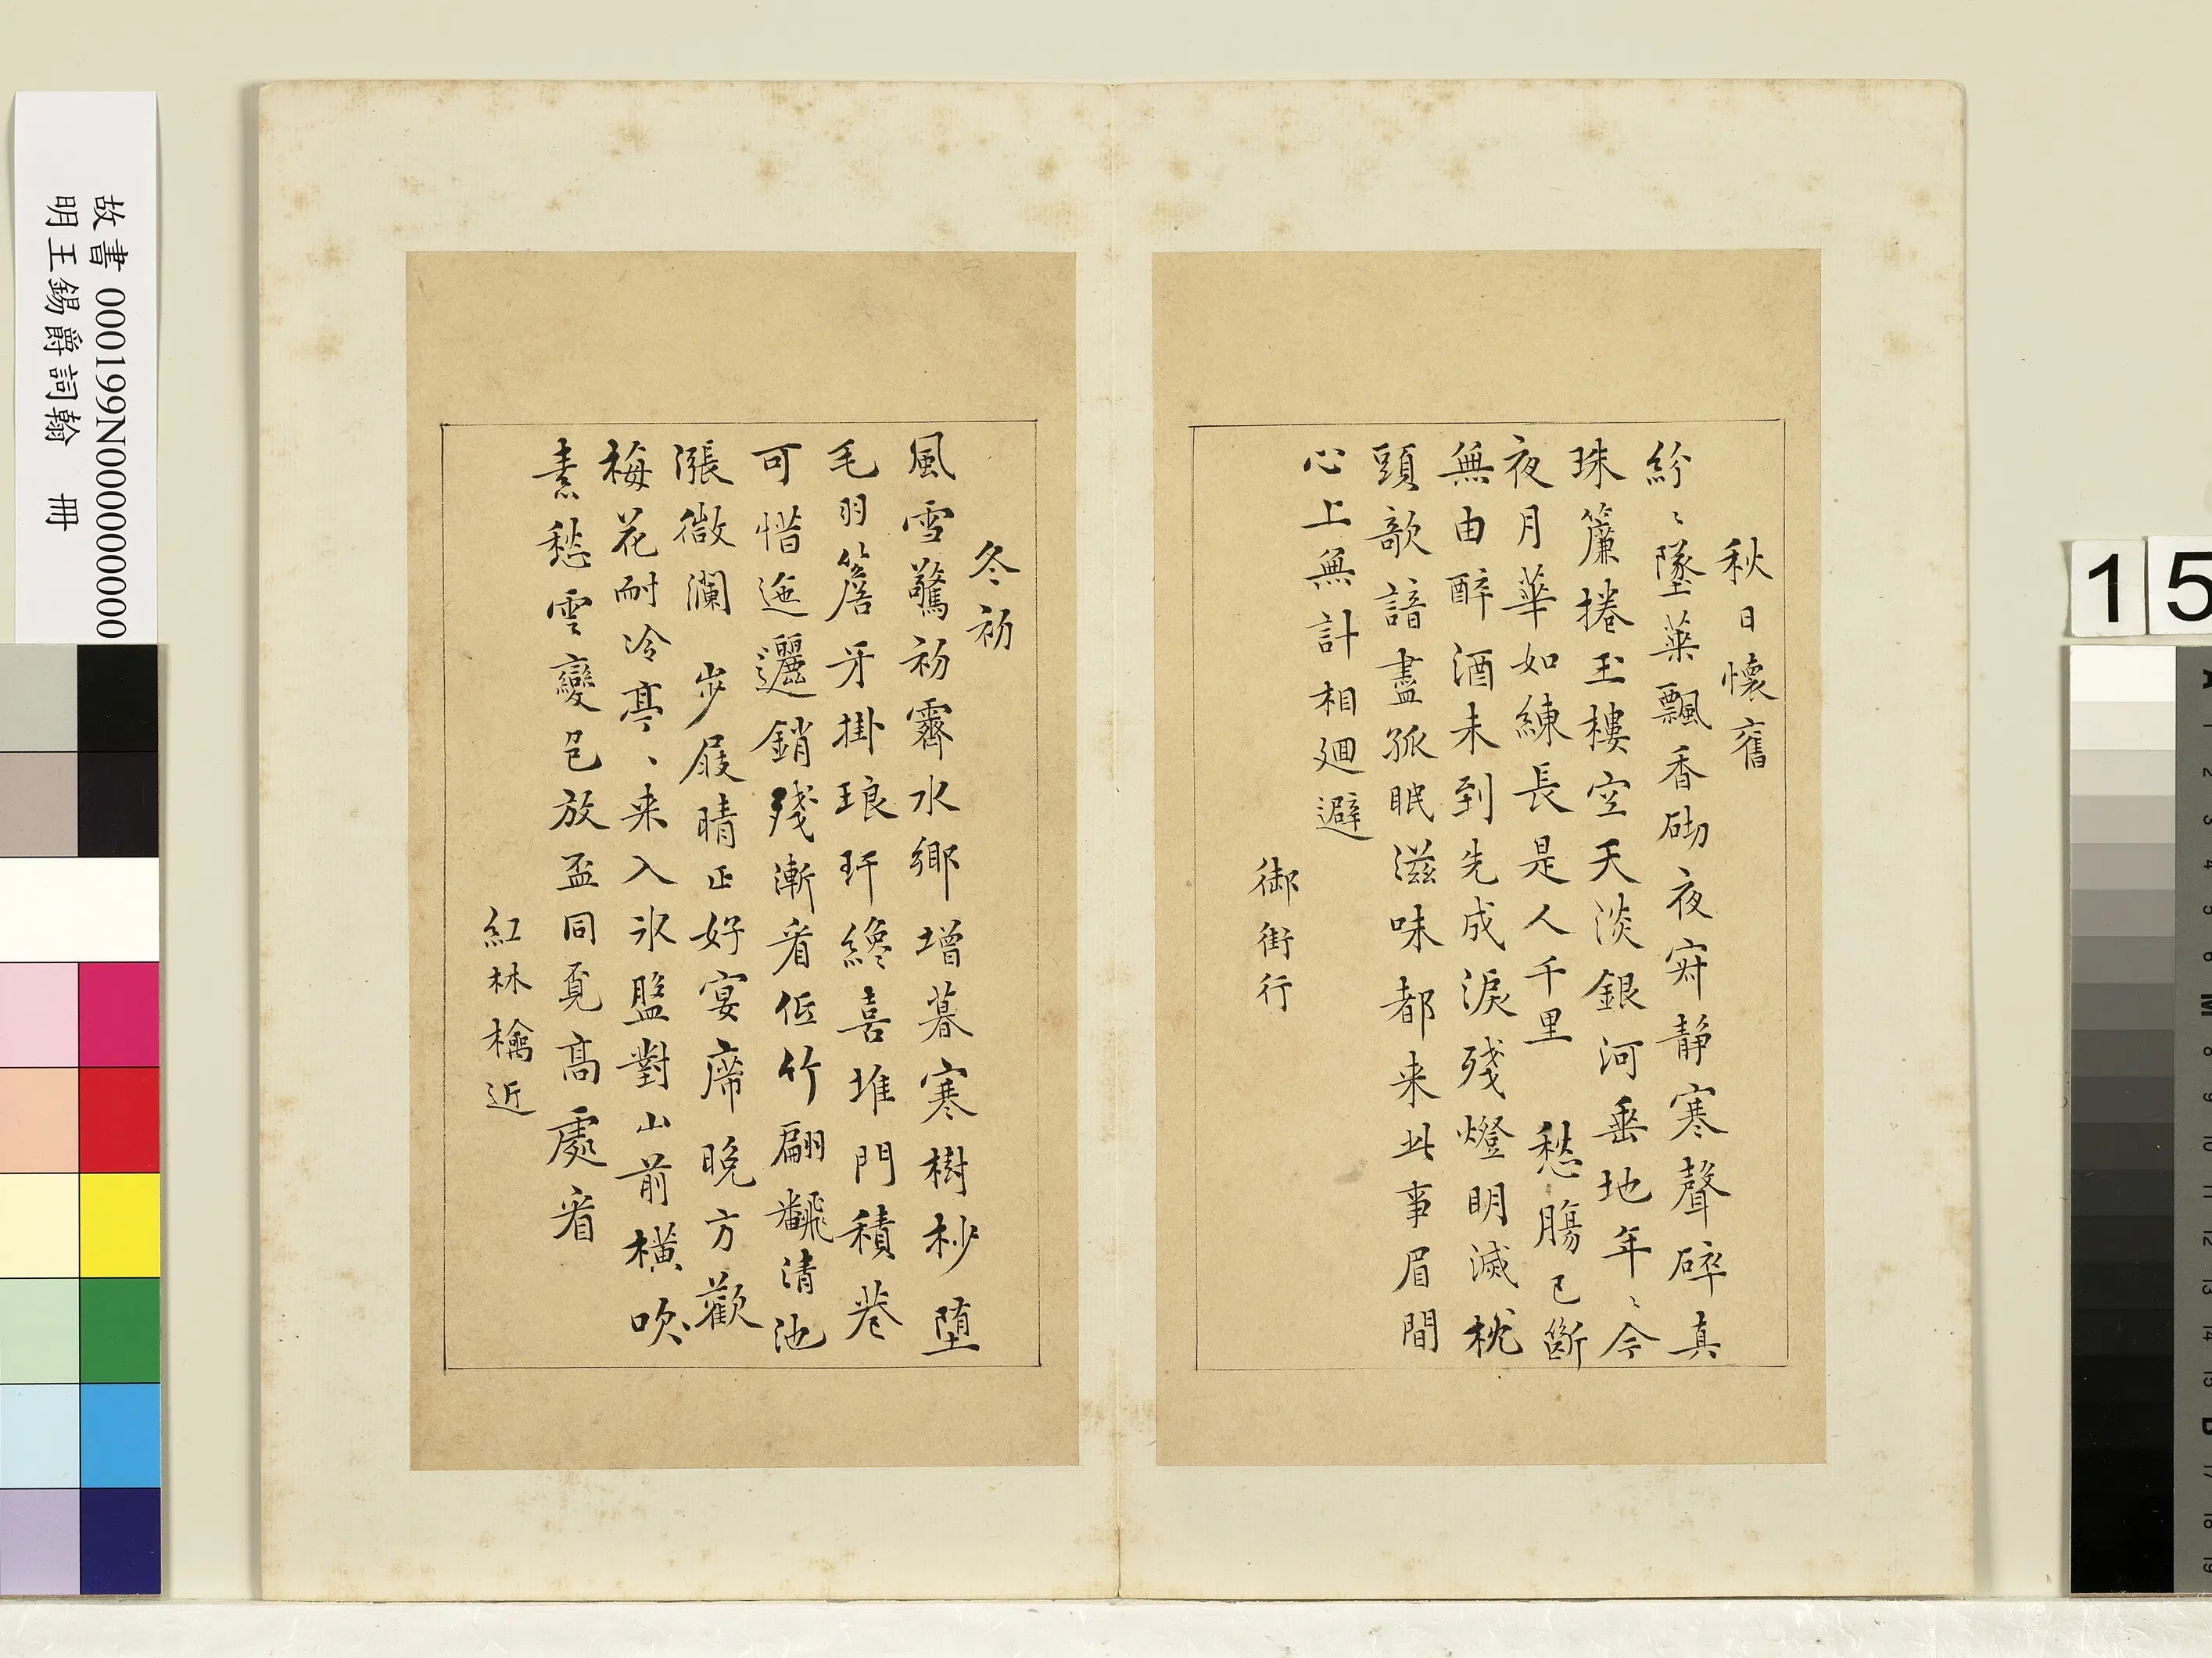 秋日懷舊
紛〻墜葉飄香砌夜𡧘靜寒聲碎真
珠簾捲玉樓空天淡銀河垂地年〻今
夜月華如練長是人千里　愁腸已斷
無由醉酒未到先成淚殘燈明滅枕
頭欹諳盡孤眠滋味都来此事眉間
心上無計相迴避
御街行
冬初
風雪驚初霽水鄉增暮寒樹杪堕
毛羽簷牙掛琅玕纔喜堆門積巷
可惜迤邐銷殘漸看低竹翩翻清池
漲微瀾　步屐晴正好宴席晚方歡
梅花耐冷亭〻来入氷盤對山前橫吹
素愁雲變色放盃同覔高處看
紅林檎近
故書 000199N000000000
明王錫爵詞翰　冊
15